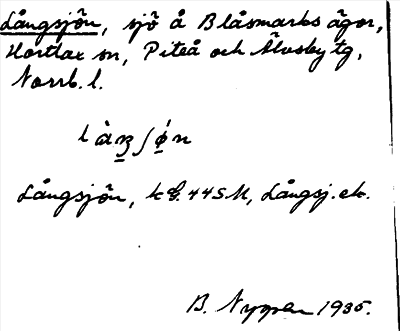 Långsjön, sjö å Blåsmarks ägor,
Hortlax sn, Piteå och Älvsby tg,
Norrb. l.
Långsjön, k bl. 44 SM, Långsj. ek.
B. Nygren 1935.